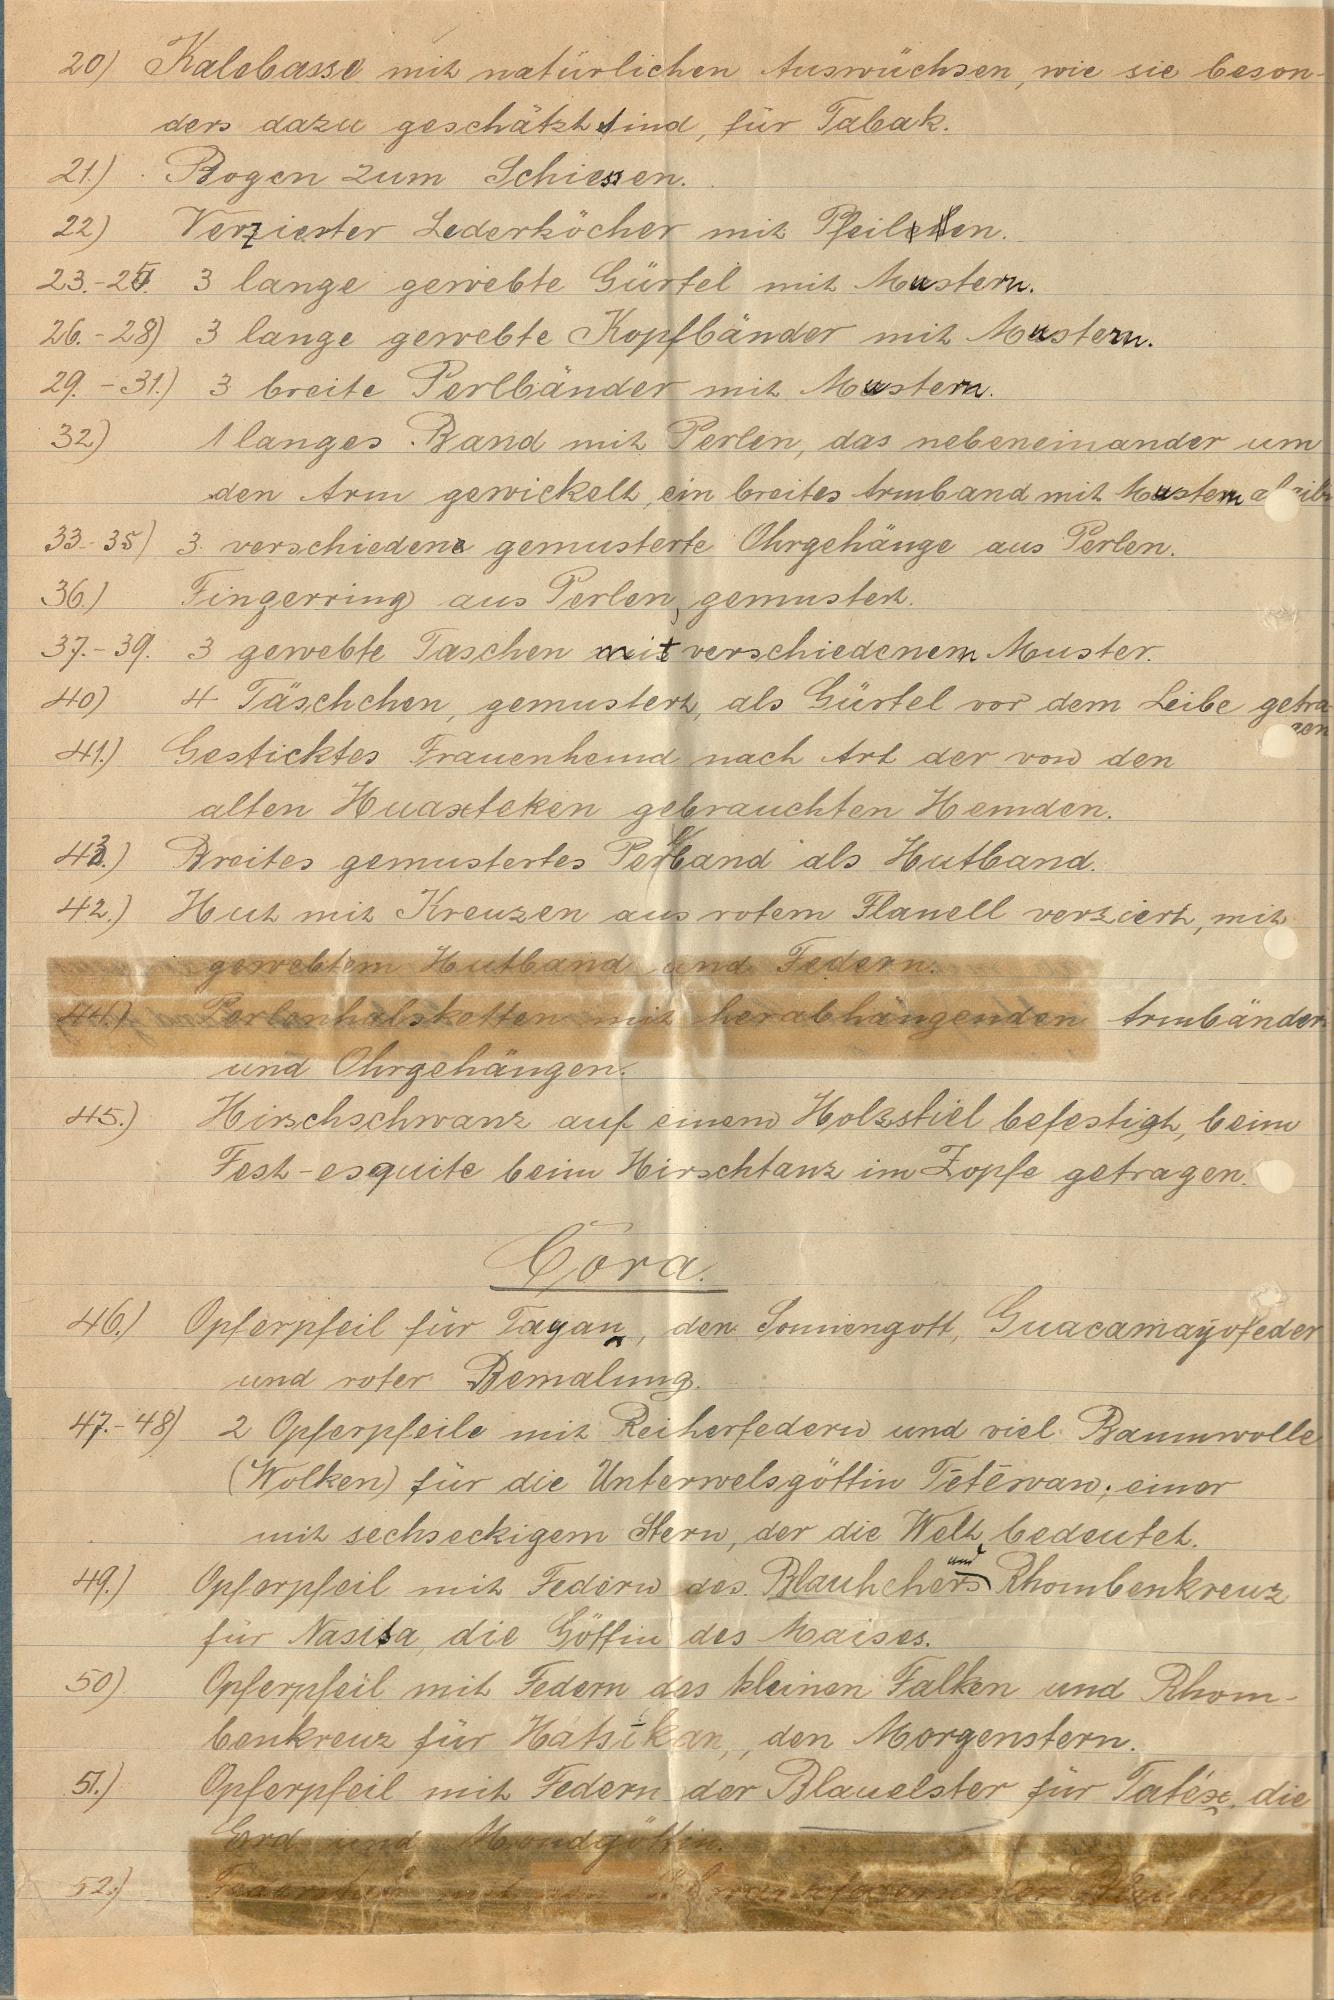 20) Kalebasse mit natürlichen Auswüchsen, wie sie beson-
ders dazu geschätzt sind, für Tabak.
21.) Bogen zum Schiessen.
22) Verzierter Lederköcher mit Pfeilen.
23.-25. 3 lange gewebte Gürtel mit Mustern.
26.-28) 3 lange gewebte Kopfbänder mit Mustern.
29.-31.) 3 breite Perlbänder mit Mustern.
32) 1 langes Band mit Perlen, das nebeneinander um
den Arm gewickelt, ein breites Armband mit Mustern
33-35) 3 verschiedene gemusterte Ohrgehänge aus Perlen.
36.) Fingerring aus Perlen, gemustert.
37.-39. 3 gewebte Taschen mit verschiedenem Muster.
40) 4 Täschchen, gemustert, als Gürtel vor dem Leibe getra-
gen
41.) Gesticktes Frauenhemd nach Art der von den
alten Huaxteken gebrauchten Hemden.
43.) Breites gemustertes Perlband als Hutband.
42.) Hut mit Kreuzen aus rotem Flanell verziert, mit
gewebtem Hutband und Federn.
44.) Perlenhalsketten mit herabhängenden Armbändern
und Ohrgehängen.
45.) Hirschschwanz auf einem Holzstiel befestigt, beim
Fest-esquite beim Hirschtanz im Zopfe getragen.
Cora.
46.) Opferpfeil für Tayau, den Sonnengott, Guacamayofeder
und roter Bemalung.
47.-48) 2 Opferpfeile mit Reiherfedern und viel Baumwolle
(Wolken) für die Unterweltsgöttin Tētēwan; einer
mit sechseckigem Stern, der die Welt bedeutet.
49.) Opferpfeil mit Federn des Blauhehers und Rhombenkreuz
für Nasisa, die Göttin des Maises.
50) Opferpfeil mit Federn des kleinen Falken und Rhom-
benkreuz für Hatsikan, den Morgenstern.
51.) Opferpfeil mit Federn der Blauelster für Tatéx, die
Erd und Mondgöttin.
52.) mit der Blauelster